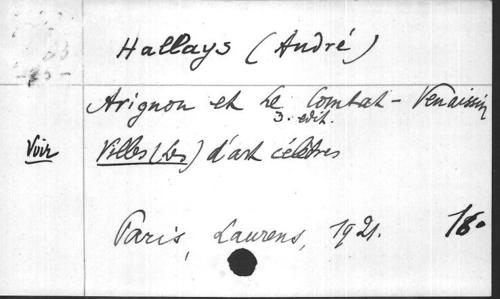 Hallays (André)
Avignon et le Comtat - Venaissin
3. edit.
Voir Villes (Les) d'art célèbres
Paris, Laurens, 1921. 18º